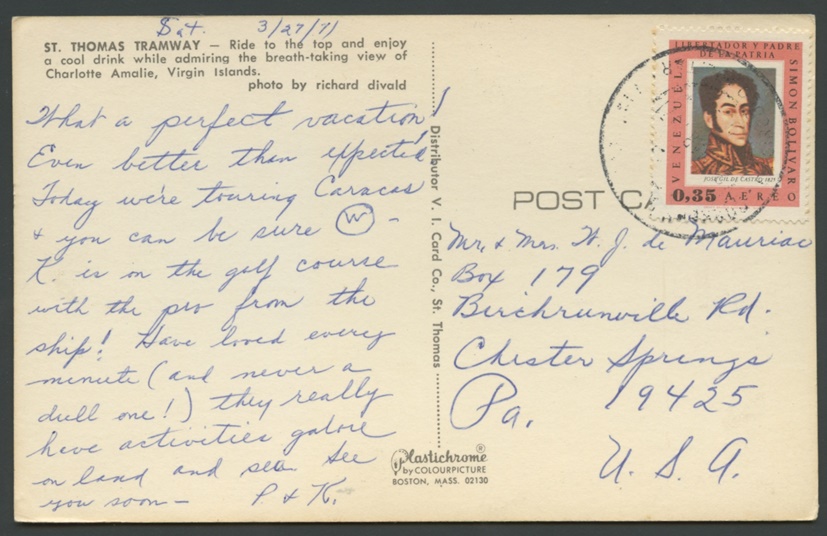 Sat. 3/27/71
ST. THOMAS TRAMWAY — Ride to the top and enjoy
a cool drink while admiring the breath-taking view of
Charlotte Amalie, Virgin Islands.
photo by richard divald
What a perfect vacation!
Even better than expected
Today we're touring Caracas
& you can be sure W -
K. is on the golf course
with the pro from the
ship! Have loved every
minute (and never a
dull one!) they really
have activities galore
on land and sea See
you soon — P. & K.
Distributor V. I. Card Co., St. Thomas
Plastichrome®
by COLOURPICTURE
BOSTON, MASS. 02130
LIBERTADOR Y PADRE
DE LA PATRIA
VENEZUELA
SIMON BOLIVAR
JOSE GIL DE CASTRO 1825
0,35 AEREO
POST CA
Mr. & Mrs. W. J. de Mauriac
Box 179
Birchrunville Rd.
Chester Springs
Pa. 19425
U. S. A.